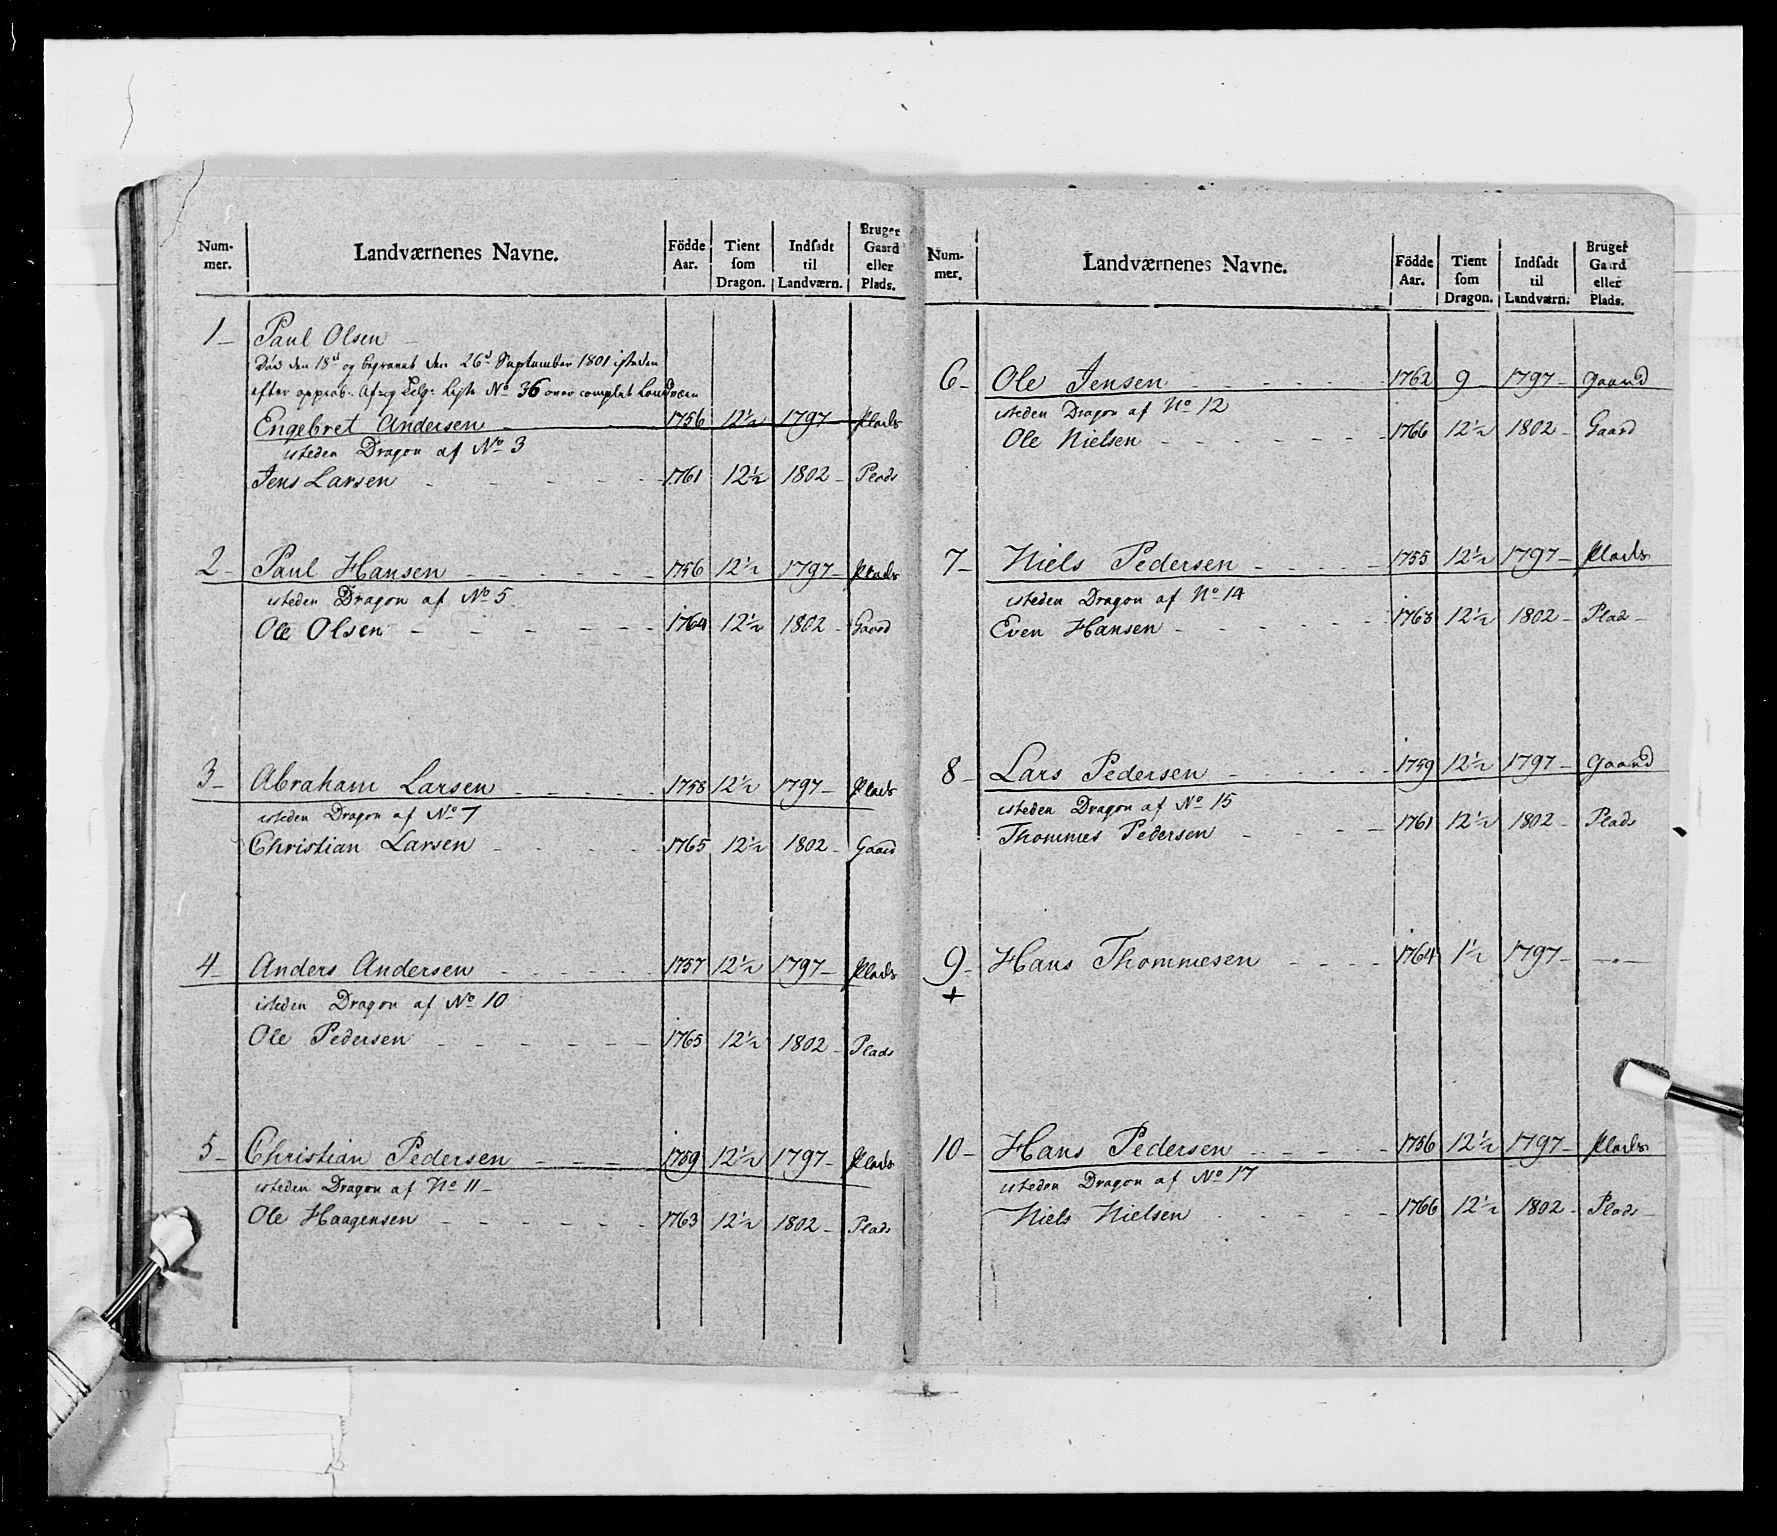 Num-mer. Landværnenes Navne. Födde Aar. Tient som Dragon. Indsadt til Landværn. Bruger Gaard eller Plads.
1 Paul Olsen
Död den 18d og begravet den 26d September 1801 isteden
efter approb. Afreg Liste No 36 over complet Landværn
Engebret Andersen 1756 12½ 1797 Plads
isteden Dragon af No 3
Jens Larsen 1761 12½ 1802 Plads
2 Paul Hansen 1756 12½ 1797 Plads
isteden Dragon af No 5
Ole Olsen 1764 12½ 1802 Gaard
3 Abraham Larsen 1758 12½ 1797 Plads
isteden Dragon af No 7
Christian Larsen 1765 12½ 1802 Gaard
4 Anders Andersen 1757 12½ 1797 Plads
isteden Dragon af No 10
Ole Pedersen 1765 12½ 1802 Plads
5 Christian Pedersen 1759 12½ 1797 Plads
isteden Dragon af No 11
Ole Haagensen 1763 12½ 1802 Plads
Num-mer. Landværnenes Navne. Födde Aar. Tient som Dragon. Indsadt til Landværn. Bruger Gaard eller Plads.
6 Ole Jensen 1762 9 1797 Gaard
isteden Dragon af No 12
Ole Nielsen 1766 12½ 1802 Gaard
7 Niels Pedersen 1755 12½ 1797 Plads
isteden Dragon af No 14
Even Hansen 1763 12½ 1802 Plad
8 Lars Pedersen 1759 12½ 1797 Gaard
isteden Dragon af No 15
Thommes Pedersen 1761 12½ 1802 Plads
9 Hans Thommesen 1764 1½ 1797
+
10 Hans Pedersen 1756 12½ 1797 Plads
isteden Dragon af No 17
Niels Nielsen 1766 12½ 1802 Plads